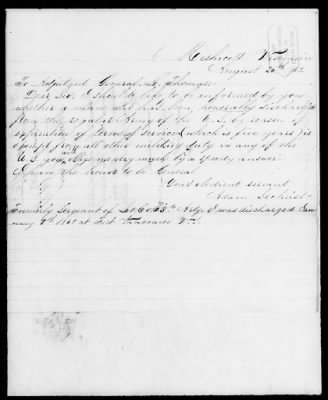 Meshicott Wisconsin
August 26th 1862
To Adjutant General L. Thomas:
Dear Sir, I should like to be informed by you
whether a man, honorably discharged
from the regular Army of the U.S. by reason of
expiration of term of service (which is five years) is
exempt from all other military duty in any of the
U.S. you will oblige me very much by a speedy answer.
I have the honor to be General
Your obedient servant
Adam
Formerly Sergeant of Co. Arty I was discharged Jan
uary 9th 1860 at Fort Vancouver W.T.